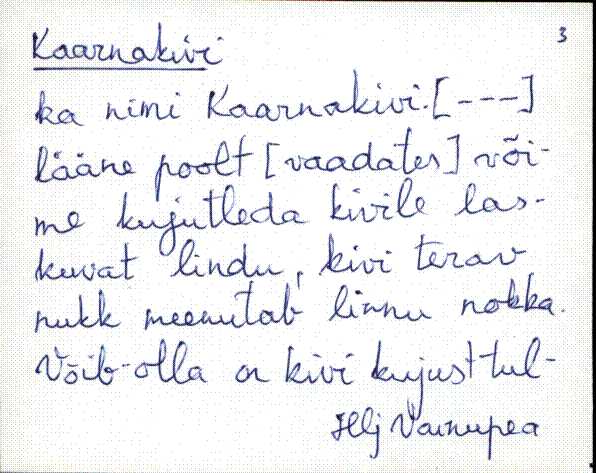 Kaarnakivi
3
ka nimi Kaarnakivi. [---]
lääne poolt [vaadates] või-
me kujutleda kivile las-
kuvat lindu, kivi terav
nukk meenutab linnu nokka.
Võib-olla on kivi kujust tul-
Hlj Vainupea